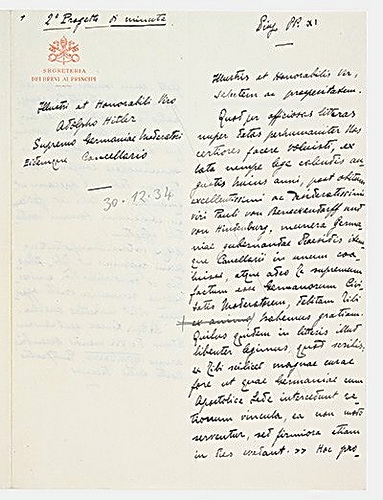 2° Progetto di minuta.
SEGRETERIA
DEI BREVI AI PRINCIPI
Illustri et Honorabili Viro
Adolpho Hitler
Supremo Germaniae Moderatori
Cancellario
30.12.34
Pius PP. XI
Illustris et Honorabilis Vir,
salutem ac prosperitatem.
Quod per officiosas literas
nuper datas perhumaniter Nos
certiores facere voluisti, ex
lata nempe lege calendis au
gustis huius anni, post obitum
excellentissimi ac desideratissimi
viri Pauli von Beneckendorff und
von Hindenburg, munera Germa-
niae gubernandae Praesidis item
que Cancellarii in unum coa-
luisse, atque adeo te supremum
factum esse Germanorum Civi
tatis Moderatorem, debitam tibi
ex animo habemus gratiam.
Quibus quidem in literis illud
libenter legimus, quod scribis,
tibi scilicet magnae curae
fore ut quae Germaniae cum
Apostolica Sede intercedunt ne-
cessitudinum vincula, ea non modo
serventur, sed firmiora etiam
in dies evadant. >> Hoc pro-